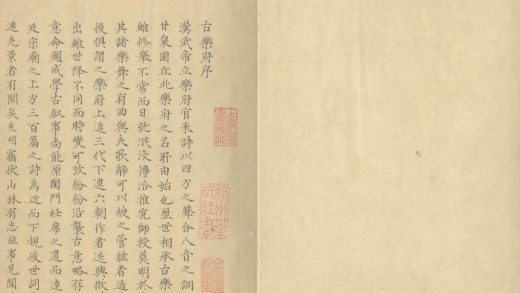 古樂府序
漢武帝立樂府官采詩以四方之聲合八音之調
甘泉圜丘此樂府之名所由始也歷世相承古樂
雖修舉不常而日就泯沒博洽推究師授莫明於
其諸樂舞之有曲與夫歌辭可以被之管絃者通
後俱謂之樂府上追三代下逮六朝作者迭興
出雖世降不同而時變可攷紛紛沿襲古意略存
意命題或學古叙事尚能原閨門衽席之遺而達
廷宗廟之上方三百篇之詩為近而下視後世詞
連光景者有間矣克明竊伏山林有志絃事見聞